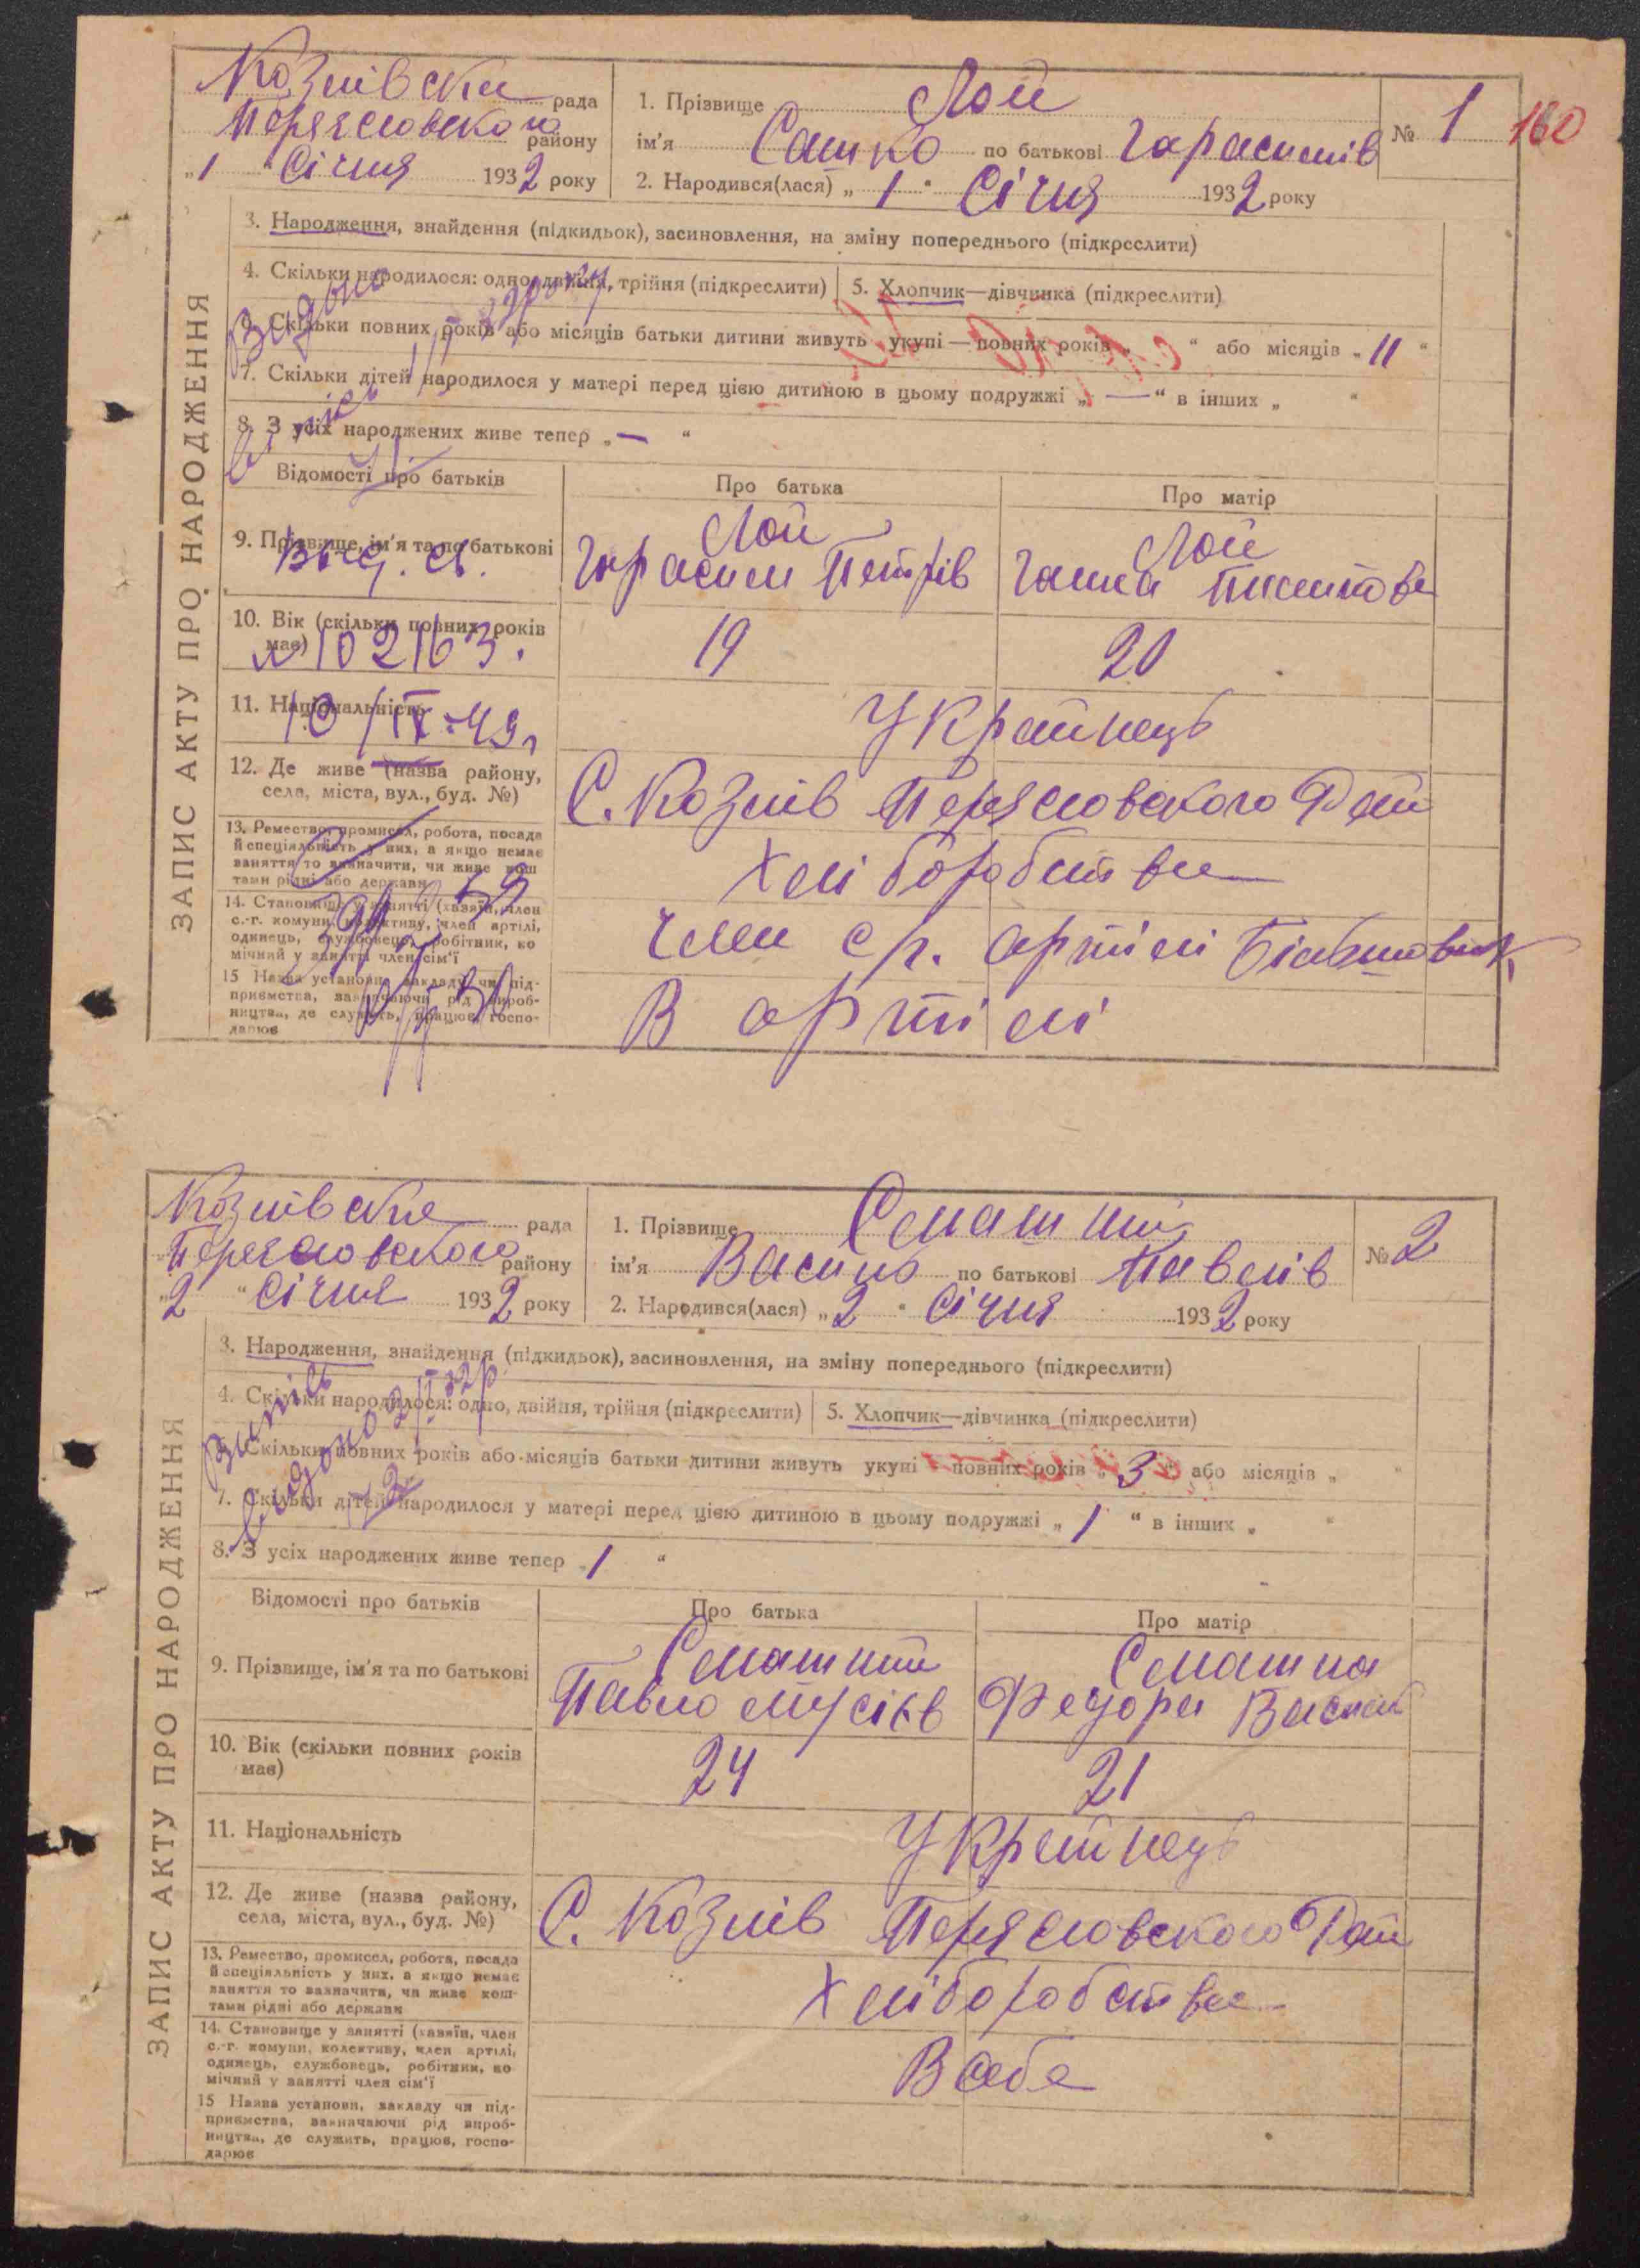 Козлівська рада
Переясловского району
„1 " Січня 1932 року
1. Прізвище Лой
ім'я Сашко по батькові Гарасимів
2. Народився(лася) „ 1 " Січня 1932 року
№ 1
160
ЗАПИС АКТУ ПРО НАРОДЖЕННЯ
3. Народження, знайдення (підкидьок), засиновлення, на зміну попереднього (підкреслити)
4. Скільки народилося: одно, двійня, трійня (підкреслити)
5. Хлопчик—дівчинка (підкреслити)
6. Скільки повних років або місяців батьки дитини живуть укупі — повних років „ " або місяців „ 11 "
7. Скільки дітей народилося у матері перед цією дитиною в цьому подружжі „ — " в інших „ "
8. З усіх народжених живе тепер „ — "
Видано
Відомості про батьків
Про батька
Про матір
9. Прізвище, ім'я та по батькові
Лой
Гарасим Петрів
Лой
Ганна
Выд. св.
10. Вік (скільки повних років має)
19
20
№ 102163.
11. Національність
Українець
10/IX-49г
12. Де живе (назва району,
села, міста, вул., буд. №)
С. Козлів Переясловского Рай
13. Ремество, промисел, робота, посада
й спеціяльність у них, а якщо немає
заняття то зазначити, чи живе кош
тами рідні або держави
Хліборобства
14. Становище у занятті (хазяїн, член
с.-г. комуни, колективу, член артілі,
одинець, службовець, робітник, по
мічний у занятті член сім'ї
Член с/г. артілі Більшовик
15 Назва установи, закладу чи під-
приємства, зазначаючи рід вироб-
ництва, де служить, працює, госпо-
дарює
В артілі
Козлівська рада
Переясловского району
„2 " Січня 1932 року
1. Прізвище
ім'я Василь по батькові Павлів
2. Народився(лася) „ 2 " Січня 1932 року
№ 2
ЗАПИС АКТУ ПРО НАРОДЖЕННЯ
3. Народження, знайдення (підкидьок), засиновлення, на зміну попереднього (підкреслити)
4. Скільки народилося: одно, двійня, трійня (підкреслити)
5. Хлопчик—дівчинка (підкреслити)
6. Скільки повних років або місяців батьки дитини живуть укупі — повних років „ 3 " або місяців „ "
7. Скільки дітей народилося у матері перед цією дитиною в цьому подружжі „ 1 " в інших „ "
8. З усіх народжених живе тепер „ 1 "
Витяг
видано 2/I 32р.
Відомості про батьків
Про батька
Про матір
9. Прізвище, ім'я та по батькові
Павло Мусіїв
Федора
10. Вік (скільки повних років
має)
24
21
11. Національність
Українець
12. Де живе (назва району,
села, міста, вул., буд. №)
С. Козлів Переясловского Рай
13. Ремество, промисел, робота, посада
й спеціяльність у них, а якщо немає
заняття то зазначити, чи живе кош-
тами рідні або держави
Хліборобства
14. Становище у занятті (хазяїн, член
с.-г. комуни, колективу, член артілі,
одинець, службовець, робітник, по
мічний у занятті член сім'ї
В себе
15 Назва установи, закладу чи під-
приємства, зазначаючи рід вироб-
ництва, де служить, працює, госпо-
дарює